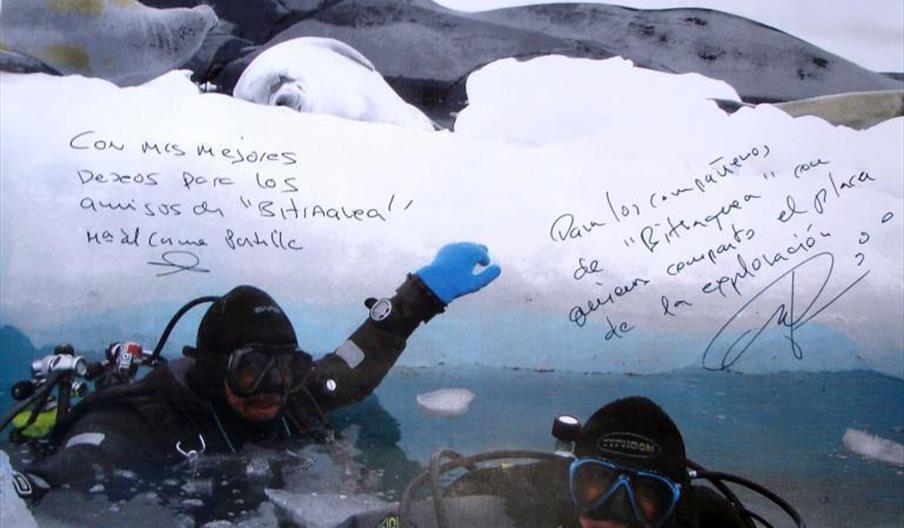 Con mis mejores
Deseos para los
amigos de "BITRAQUEA"
Mª del Carmen Portilla
Para los compañeros
de "Bitraquea" con
quienes comparto el placer
de la exploración
TYPHOON